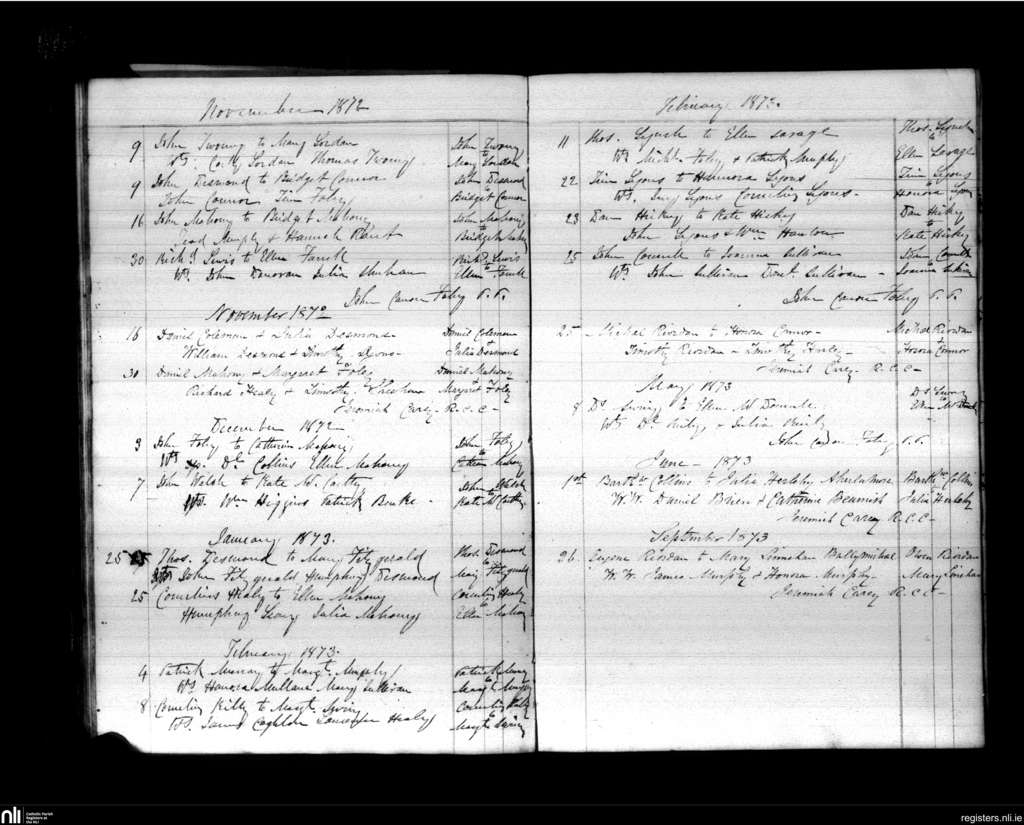 November 1872
9 John Twomy to Mary Jordan John Twomy
Ws. Jordan Thomas Twomy to Mary Jordan
9 John Desmond to Bridget Connor John Desmond
John Connor Tim Foley to Bridget Connor
16 John Mahony to Bridget Mahony John Mahony
Murphy & Hannah to Bridget Mahony
30 Richd. Lewis to Ellen Richd. Lewis
Ws. John Donovan Julia to Ellen
John Canon Foley P.P.
November 1872
16 Daniel Coleman & Julia Desmond Daniel Coleman
William Desmond & Timothy Lyons Julia Desmond
30 Daniel Mahony & Margaret Foley Daniel Mahony
Richard Healy & Timothy Margaret Foley
Jeremiah Carey R.C.C.
December 1872
3 John Foley to Catherine Mahony John Foley
Ws. Dl. Collins Ellen Mahony to Mahony
7 John Walsh to Kate McCarthy John Walsh
Ws. Wm. Higgins Patrick Bourke Kate McCarthy
January 1873.
25 25 Thos. Desmond to Mary Fitzgerald Thos. Desmond
Ws John Fitzgerald Humphry Desmond to Mary Fitzgerald
25 Cornelius Healy to Ellen Mahony Healy
Humphry Julia Mahony to Ellen Mahony
February, 1873.
4 Patrick Murray to Margt. Murphy Patrick Murray
Ws Honora Mullane Mary Sullivan to Margt Murphy
8 Cornelius Kelly to Margt. Swiny Cornelius Kelly
Ws. James Coghlan Healy Margt Swiny
February, 1873.
11 Thos. Lynch to Ellen Savage Thos. Lynch
Ws Michl. Foley & Patrick Murphy to Ellen Savage
22 Tim Lyons to Hannora Lyons Tim Lyons
Ws. Lyons Cornelius Lyons. to Honora Lyons
23 Dan Hickey to Kate Hickey Dan Hickey
John Lyons & Wm. Hanlon to Kate Hickey
25 John to Joanna Sullivan John
Ws. John Sullivan Sullivan to Joanna
John Canon Foley P.P.
25 Michael Riordan to Honora Connor Michael Riordan
Timothy Riordan & Timothy Honora Connor
Jeremiah Carey R.C.C.
May 1873
8 Dl. Swiny to Ellen Mc Dl Swiny
Ws Dl. & Julia
John Canon Foley P.P.
June 1873
1st Barthw. Collins to Julia Herlihy Barthw. Collins
W.W. Daniel Brien & Catherine Beamish Julia Herlihy
Jeremiah Carey R.C.C.
September 1873
26 Eugene Riordan to Mary Linnehan Riordan
W.W. James Murphy & Honora Murphy Mary
Jeremiah Carey R.C.C.
nli
Catholic Parish
Registers at
the NLI
registers.nli.ie